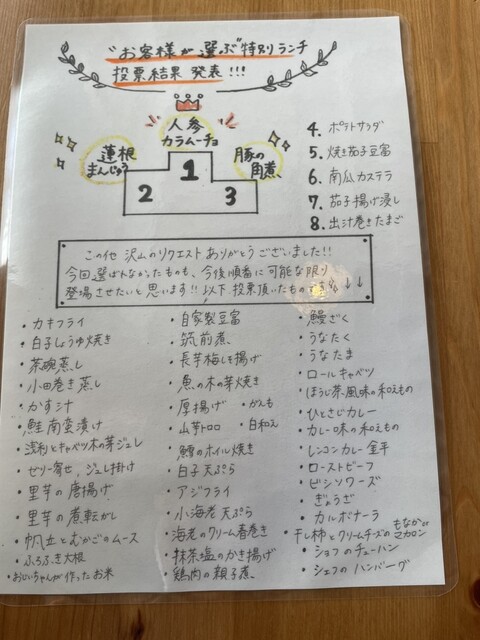 "お客様が選ぶ"特別ランチ
投票結果 発表!!!
人参
カラムーチョ
蓮根
まんじゅう
豚の
角煮
1
2
3
4. ポテトサラダ
5. 焼き茄子豆富
6. 南瓜カステラ
7. 茄子揚げ浸し
8. 出汁巻きたまご
この他 沢山のリクエストありがとうございました!!
今回選ばれなかったものも、今後順番に可能な限り
登場させたいと思います!! 以下 投票頂いたもの
・カキフライ
・白子しょうゆ焼き
・茶碗蒸し
・小田巻き蒸し
・かす汁
・鮭 南蛮漬け
・浅利とキャベツ木の芽ジュレ
・ゼリー寄せ、ジュレ掛け
・里芋の唐揚げ
・里芋の煮転がし
・帆立とむかごのムース
・ふろふき大根
・おじいちゃんが作ったお米
・自家製豆富
・筑前煮
・長芋梅しそ揚げ
・魚の木の芽焼き
・厚揚げ ・がんも
・山芋トロロ ・白和え
・鱈のホイル焼き
・白子天ぷら
・アジフライ
・小海老 天ぷら
・海老のクリーム春巻き
・抹茶塩のかき揚げ
・鶏肉の親子煮
・鰻ざく
・うなたく
・うなたま
・ロールキャベツ
・ほうじ茶風味の和えもの
・ひとさじカレー
・カレー味の和えもの
・レンコンカレー金平
・ローストビーフ
・ビシソワーズ
・ぎょうざ
・カルボナーラ
・干し柿とクリームチーズのもなか or マカロン
・シェフのチャーハン
・シェフのハンバーグ